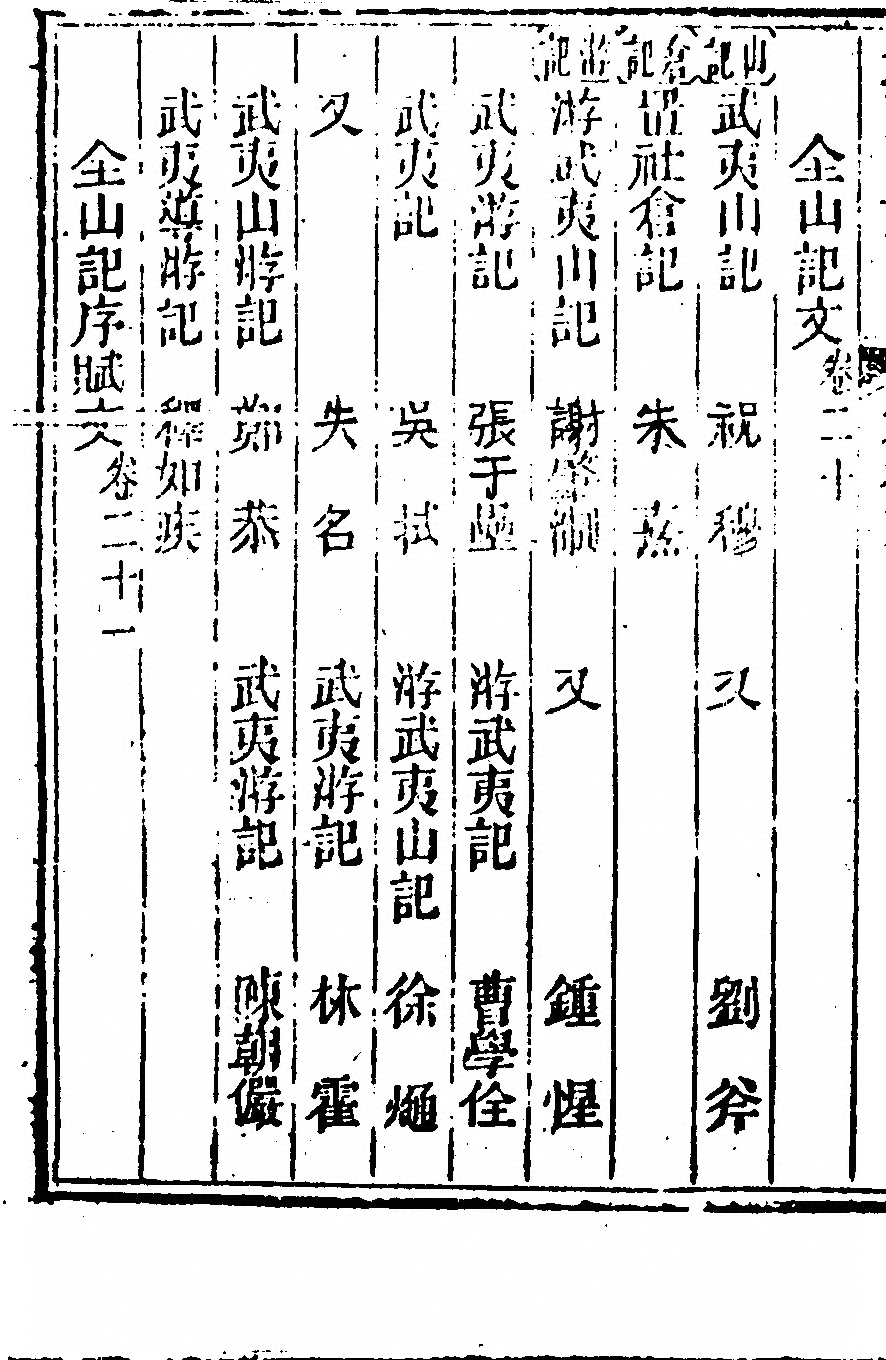 全山記文 卷二十
山記
武夷山記 祝穆 又 劉斧
倉記
社倉記 朱熹
游記
游武夷山記 謝肇淛 又 鍾惺
武夷游記 張于壘 游武夷記 曹學佺
武夷記 吳拭 游武夷山記 徐𤊹
又 失名 武夷游記 林霍
武夷山游記 鄭恭 武夷游記 陳朝儼
武夷導游記 釋如疾
全山記序賦文 卷二十一